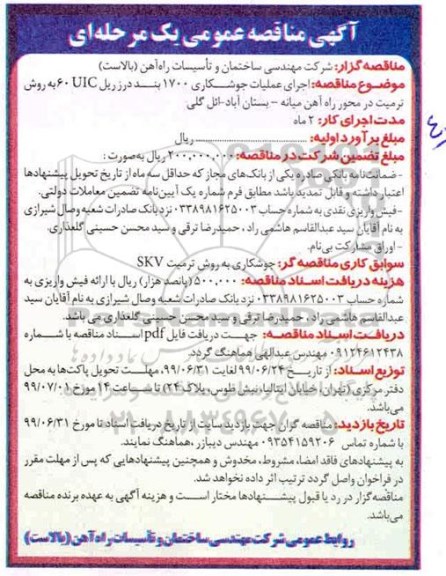 آگهی مناقصه عمومی یک مرحله‌ای
مناقصه گزار: شرکت مهندسی ساختمان و تأسیسات راه‌آهن (بالاست)
موضوع مناقصه: اجرای عملیات جوشکاری ۱۷۰۰ بند درز ریل UIC ۶۰ به روش
ترمیت در محور راه آهن میانه - بستان آباد-ائل گلی
مدت اجرای کار: ۲ ماه
مبلغ برآورد اولیه: ........................ ریال
مبلغ تضمین شرکت در مناقصه: ۲۰۰,۰۰۰,۰۰۰ ریال به‌صورت:
- ضمانت‌نامه بانکی صادره یکی از بانک‌های مجاز که حداقل سه ماه از تاریخ تحویل پیشنهادها
اعتبار داشته و قابل تمدید باشد مطابق فرم شماره یک آیین‌نامه تضمین معاملات دولتی.
- فیش واریزی نقدی به شماره حساب ۰۳۳۸۹۸۱۶۲۵۰۰۳ نزد بانک صادرات شعبه وصال شیرازی
به نام آقایان سید عبدالقاسم هاشمی راد، حمیدرضا ترقی و سید محسن حسینی گلعذاری.
- اوراق مشارکت بی‌نام.
سوابق کاری مناقصه گر: جوشکاری به روش ترمیت SKV
هزینه دریافت اسناد مناقصه: ۵۰۰,۰۰۰ (پانصد هزار) ریال با ارائه فیش واریزی به
شماره حساب ۰۳۳۸۹۸۱۶۲۵۰۰۳ نزد بانک صادرات شعبه وصال شیرازی به نام آقایان سید
عبدالقاسم هاشمی راد، حمیدرضا ترقی و سید محسن حسینی گلعذاری می باشد.
دریافت اسناد مناقصه: جهت دریافت فایل pdf اسناد مناقصه با شماره
۰۹۱۲۴۶۱۲۴۳۸ مهندس عبدالهی هماهنگ گردد.
توزیع اسناد: از تاریخ ۹۹/۰۶/۲۴ لغایت ۹۹/۰۶/۳۱، مهلت تحویل پاکت‌ها به محل
دفتر مرکزی (تهران، خیابان ایتالیا، نبش طوس، پلاک ۲۴) تا ساعت ۱۴ مورخ ۹۹/۰۷/۰۱
می‌باشد.
تاریخ بازدید: مناقصه گران جهت بازدید سایت از تاریخ دریافت اسناد تا مورخ ۹۹/۰۶/۳۱
با شماره تماس ۰۹۳۵۴۱۵۹۲۰۶ مهندس دیبازر، هماهنگ نمایند.
به پیشنهادهای فاقد امضا، مشروط، مخدوش و همچنین پیشنهادهایی که پس از مهلت مقرر
در فراخوان واصل گردد ترتیب اثر داده نخواهد شد.
مناقصه‌گزار در رد یا قبول پیشنهادها مختار است و هزینه آگهی به عهده برنده مناقصه
می‌باشد.
روابط عمومی شرکت مهندسی ساختمان و تأسیسات راه آهن (بالاست)